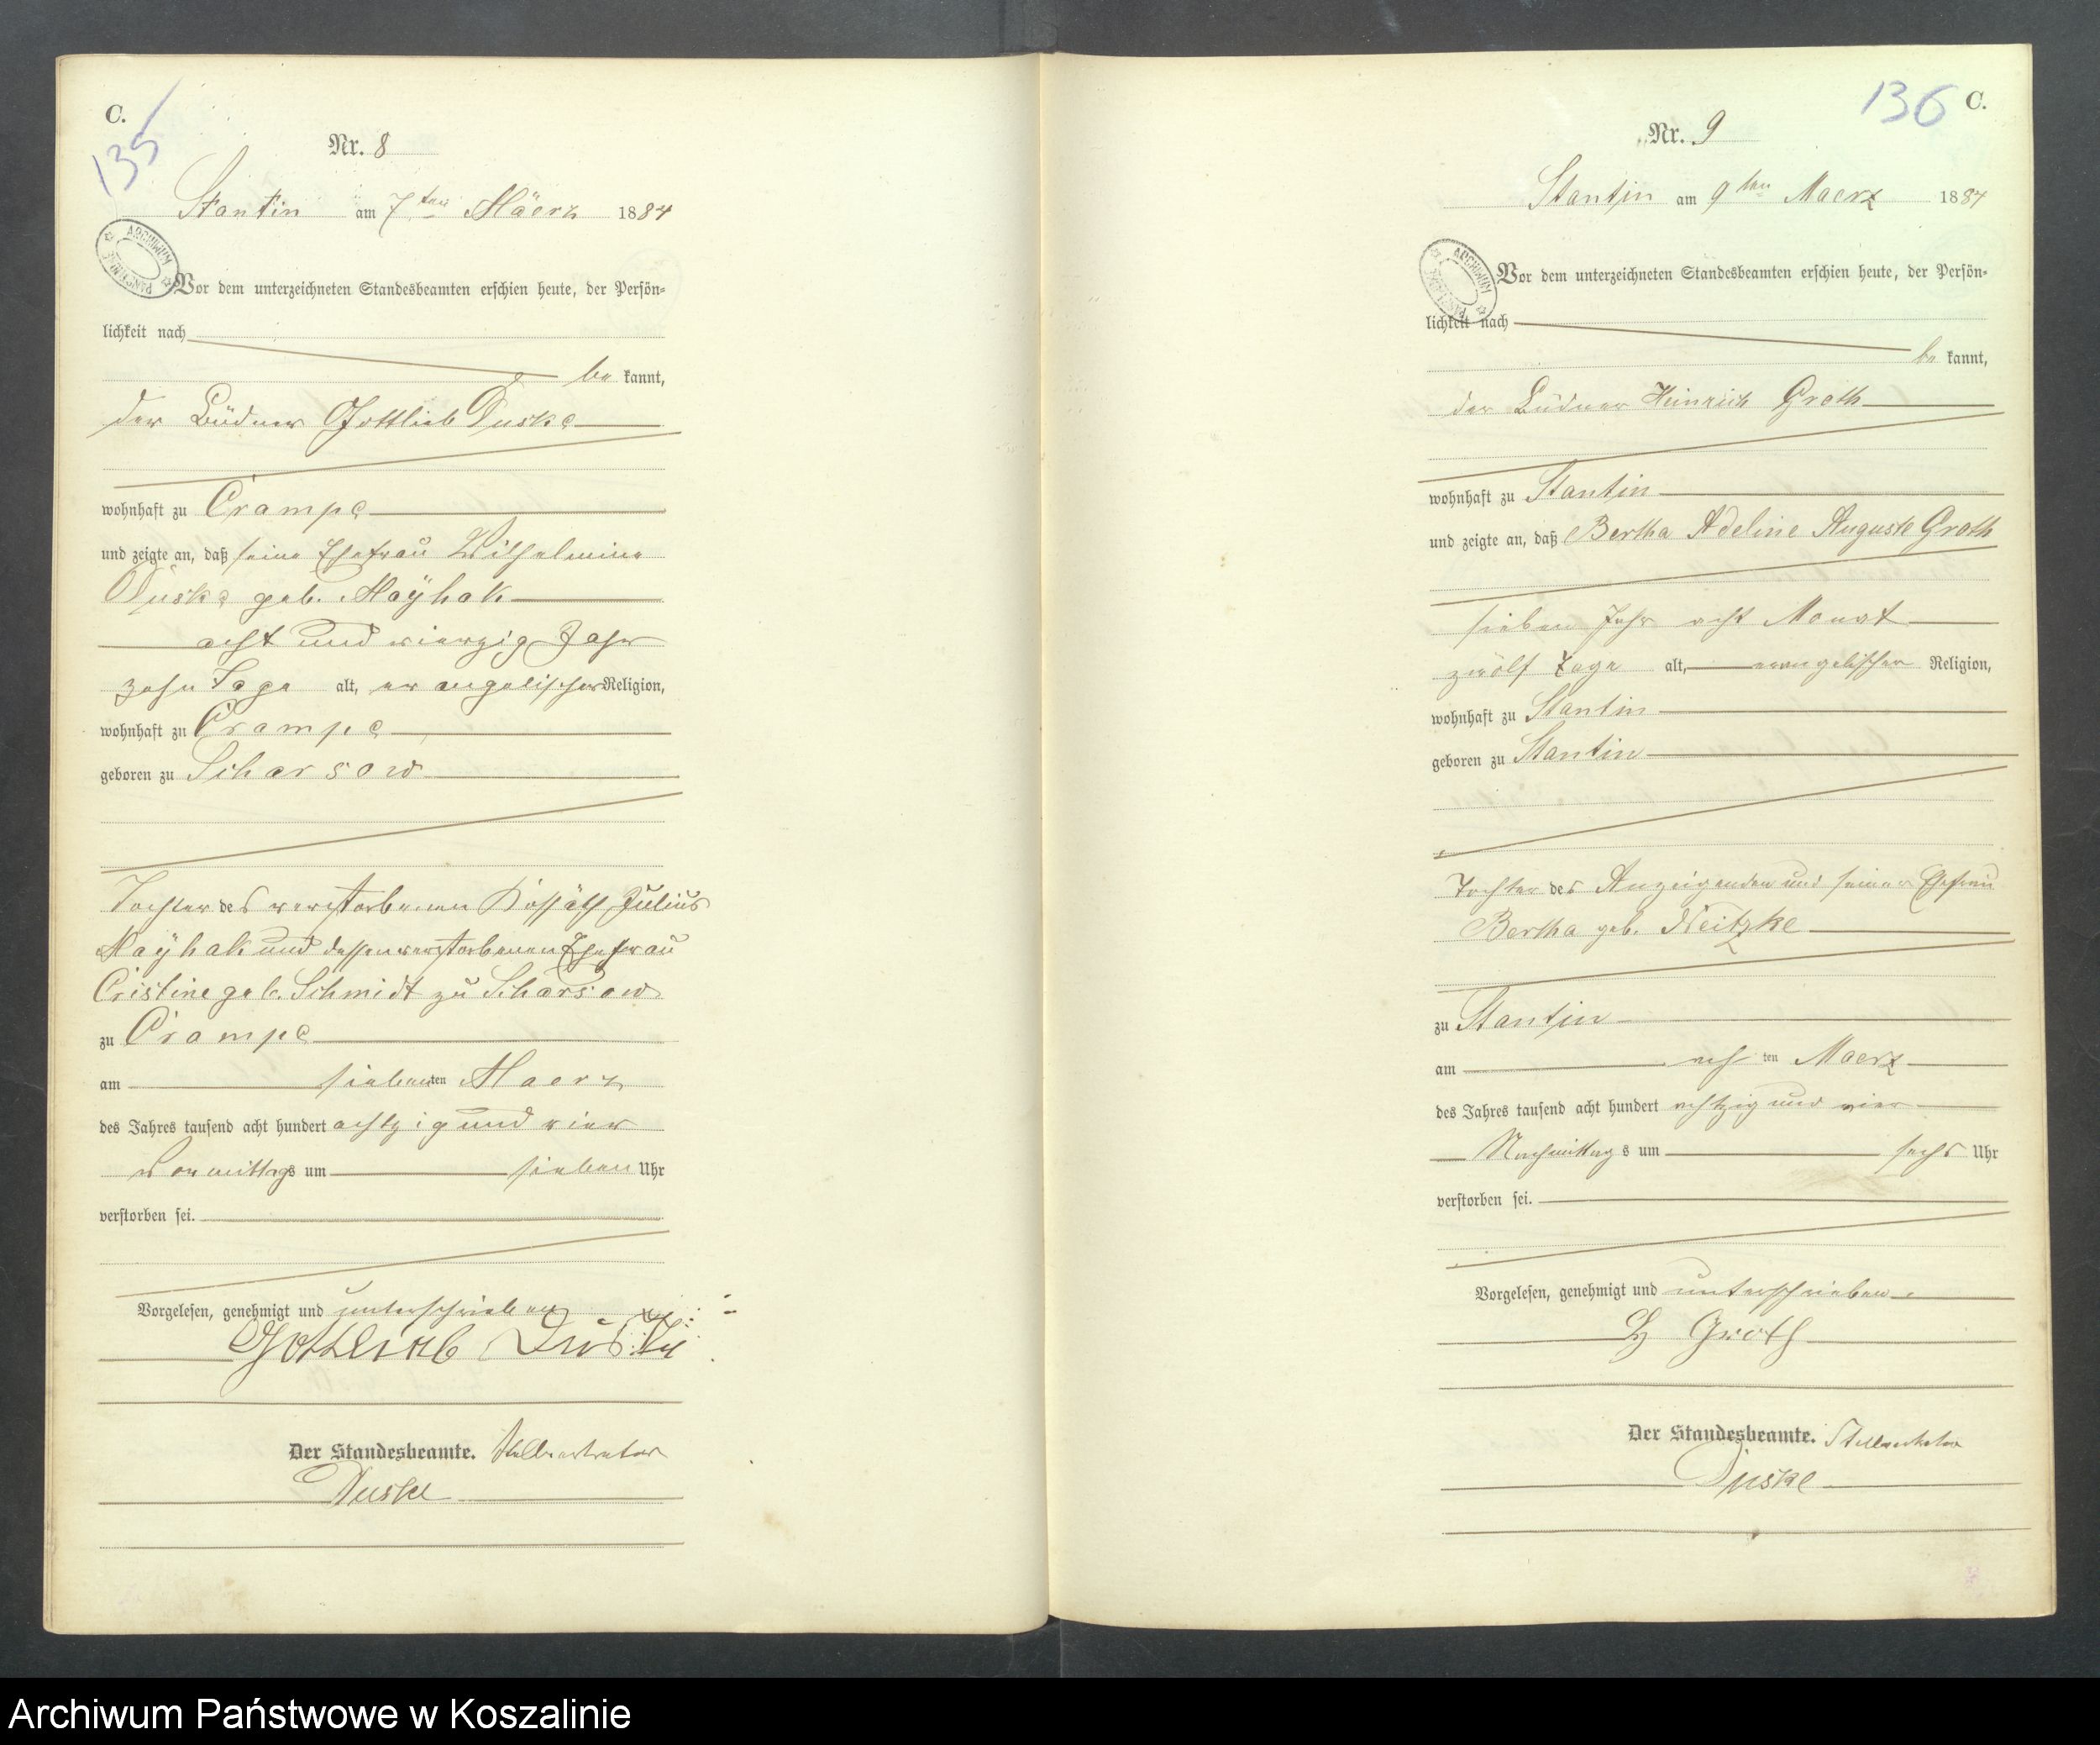 C.
135
Nr. 8
Stantin am 7ten Määrz 1884
ARCHIWUM PAŃSTWOWE
Vor dem unterzeichneten Standesbeamten erschien heute, der Persön-
lichkeit nach
be kannt,
der Büdner Gottlieb Duske
wohnhaft zu Crampe
und zeigte an, daß seine Ehefrau Wilhelmine
Duske geb. Mayhak
acht und vierzig Jahr
zehn Tage alt, evangelischer Religion,
wohnhaft zu Crampe
geboren zu Scharsow
Tochter des verstorbenen Kossäth Julius
Mayhak und dessen verstorbenen Ehefrau
Cristine geb. Schmidt zu Scharsow
zu Crampe
am siebenten Maerz
des Jahres tausend acht hundert achtzig und vier
Vormittags um sieben Uhr
verstorben sei.
Vorgelesen, genehmigt und unterschrieben
Gottlieb Duske
Der Standesbeamte. Stellvertreter
Duske
136 C.
Nr. 9
Stantin am 9ten Maerz 1884
ARCHIWUM PAŃSTWOWE
Vor dem unterzeichneten Standesbeamten erschien heute, der Persön-
lichkeit nach
be kannt,
der Büdner Heinrich Groth
wohnhaft zu Stantin
und zeigte an, daß Bertha Adeline Auguste Groth
sieben Jahr acht Monat
zwölf Tage alt, evangelischer Religion,
wohnhaft zu Stantin
geboren zu Stantin
Tochter des Anzeigenden und seiner Ehefrau
Bertha geb. Neitzke
zu Stantin
am achten Maerz
des Jahres tausend acht hundert achtzig und vier
Nachmittags um sechs Uhr
verstorben sei.
Vorgelesen, genehmigt und unterschrieben
H Groth
Der Standesbeamte. Stellvertreter
Duske
Archiwum Państwowe w Koszalinie